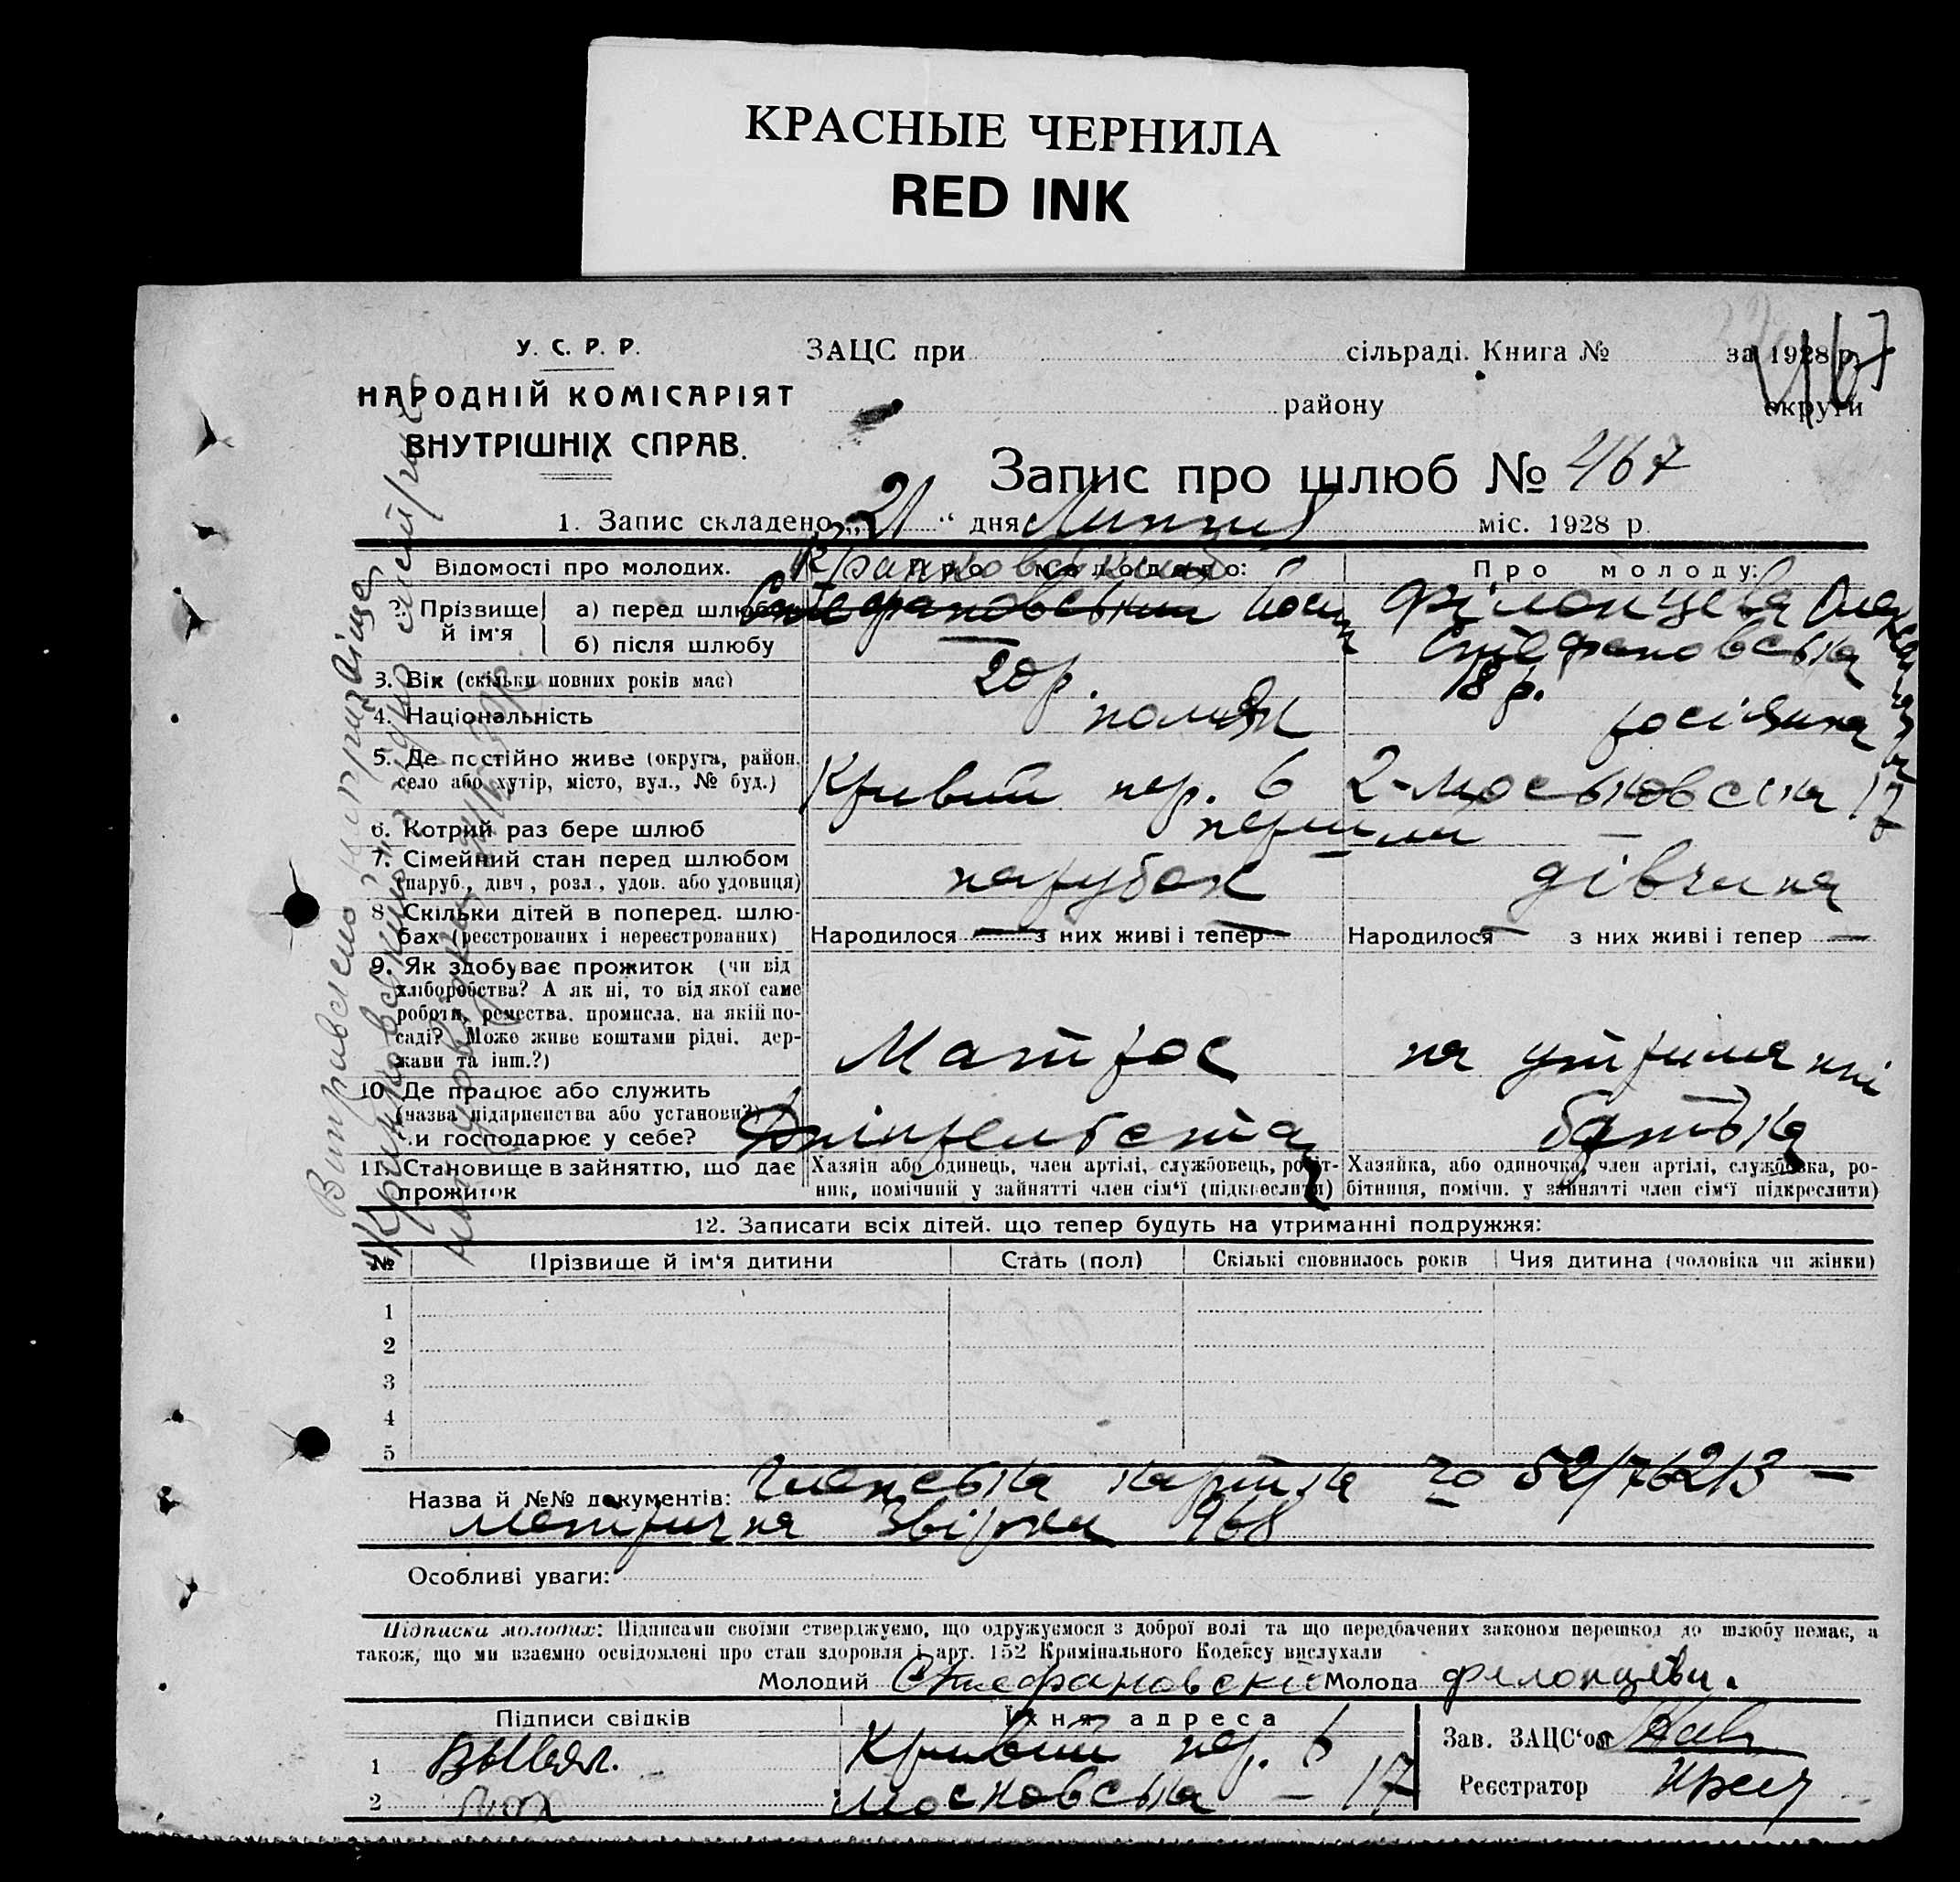 КРАСНЫЕ ЧЕРНИЛА
RED INK
467
У. С. Р. Р.
НАРОДНІЙ КОМІСАРІЯТ
ВНУТРІШНІХ СПРАВ.
ЗАЦС при сільраді. Книга № за 1928 р.
району округи
Запис про шлюб № 467
1. Запис складено „21“ дня Липця міс. 1928 р.
Відомості про молодих. Про молодого: Про молоду:
2. Прізвище й ім'я
а) перед шлюбом Стефановський Йосип Філонцева Олександра
б) після шлюбу — Стефановська
3. Вік (скільки повних років має) 20 р. 18 р.
4. Національність поляк росіянка
5. Де постійно живе (округа, район, село або хутір, місто, вул., № буд.) Кривий пер. 6 2-Московська 17
6. Котрий раз бере шлюб перший —
7. Сімейний стан перед шлюбом (паруб., дівч., розл., удов. або удовиця) парубок дівчина
8. Скільки дітей в поперед. шлюбах (реєстрованих і нереєстрованих) Народилося — з них живі і тепер — Народилося — з них живі і тепер —
9. Як здобуває прожиток (чи від хліборобства? А як ні, то від якої саме роботи, ремества, промисла, на якій посаді? Може живе коштами рідні, держави та інш.?) Матрос на утриманні
10. Де працює або служить (назва підприємства або установи?) чи господарює у себе? батька
11. Становище в зайняттю, що дає прожиток
Хазяін або одинець, член артілі, службовець, робітник, помічний у зайнятті член сім'ї (підкреслити)
Хазяйка, або одиночка, член артілі, службовка, робітниця, помічн. у зайнятті член сім'ї підкреслити)
12. Записати всіх дітей, що тепер будуть на утриманні подружжя:
№ Прізвище й ім'я дитини Стать (пол) Скількі сповнилось років Чия дитина (чоловіка чи жінки)
1
2
3
4
5
Назва й №№ документів: Членська картка 52/76213 —
Метрична 968
Особливі уваги:
Підписка молодих: Підписами своїми стверджуємо, що одружуємося з доброї волі та що передбачених законом перешкод до шлюбу немає, а
також, що ми взаємно освідомлені про стан здоровля і арт. 152 Кримінального Кодексу вислухали
Молодий Стефановскій Молода Филонцева.
Підписи свідків Їхня адреса
1 Кривий пер. 6
2 Московська – 17
Зав. ЗАЦС'ом
Реєстратор